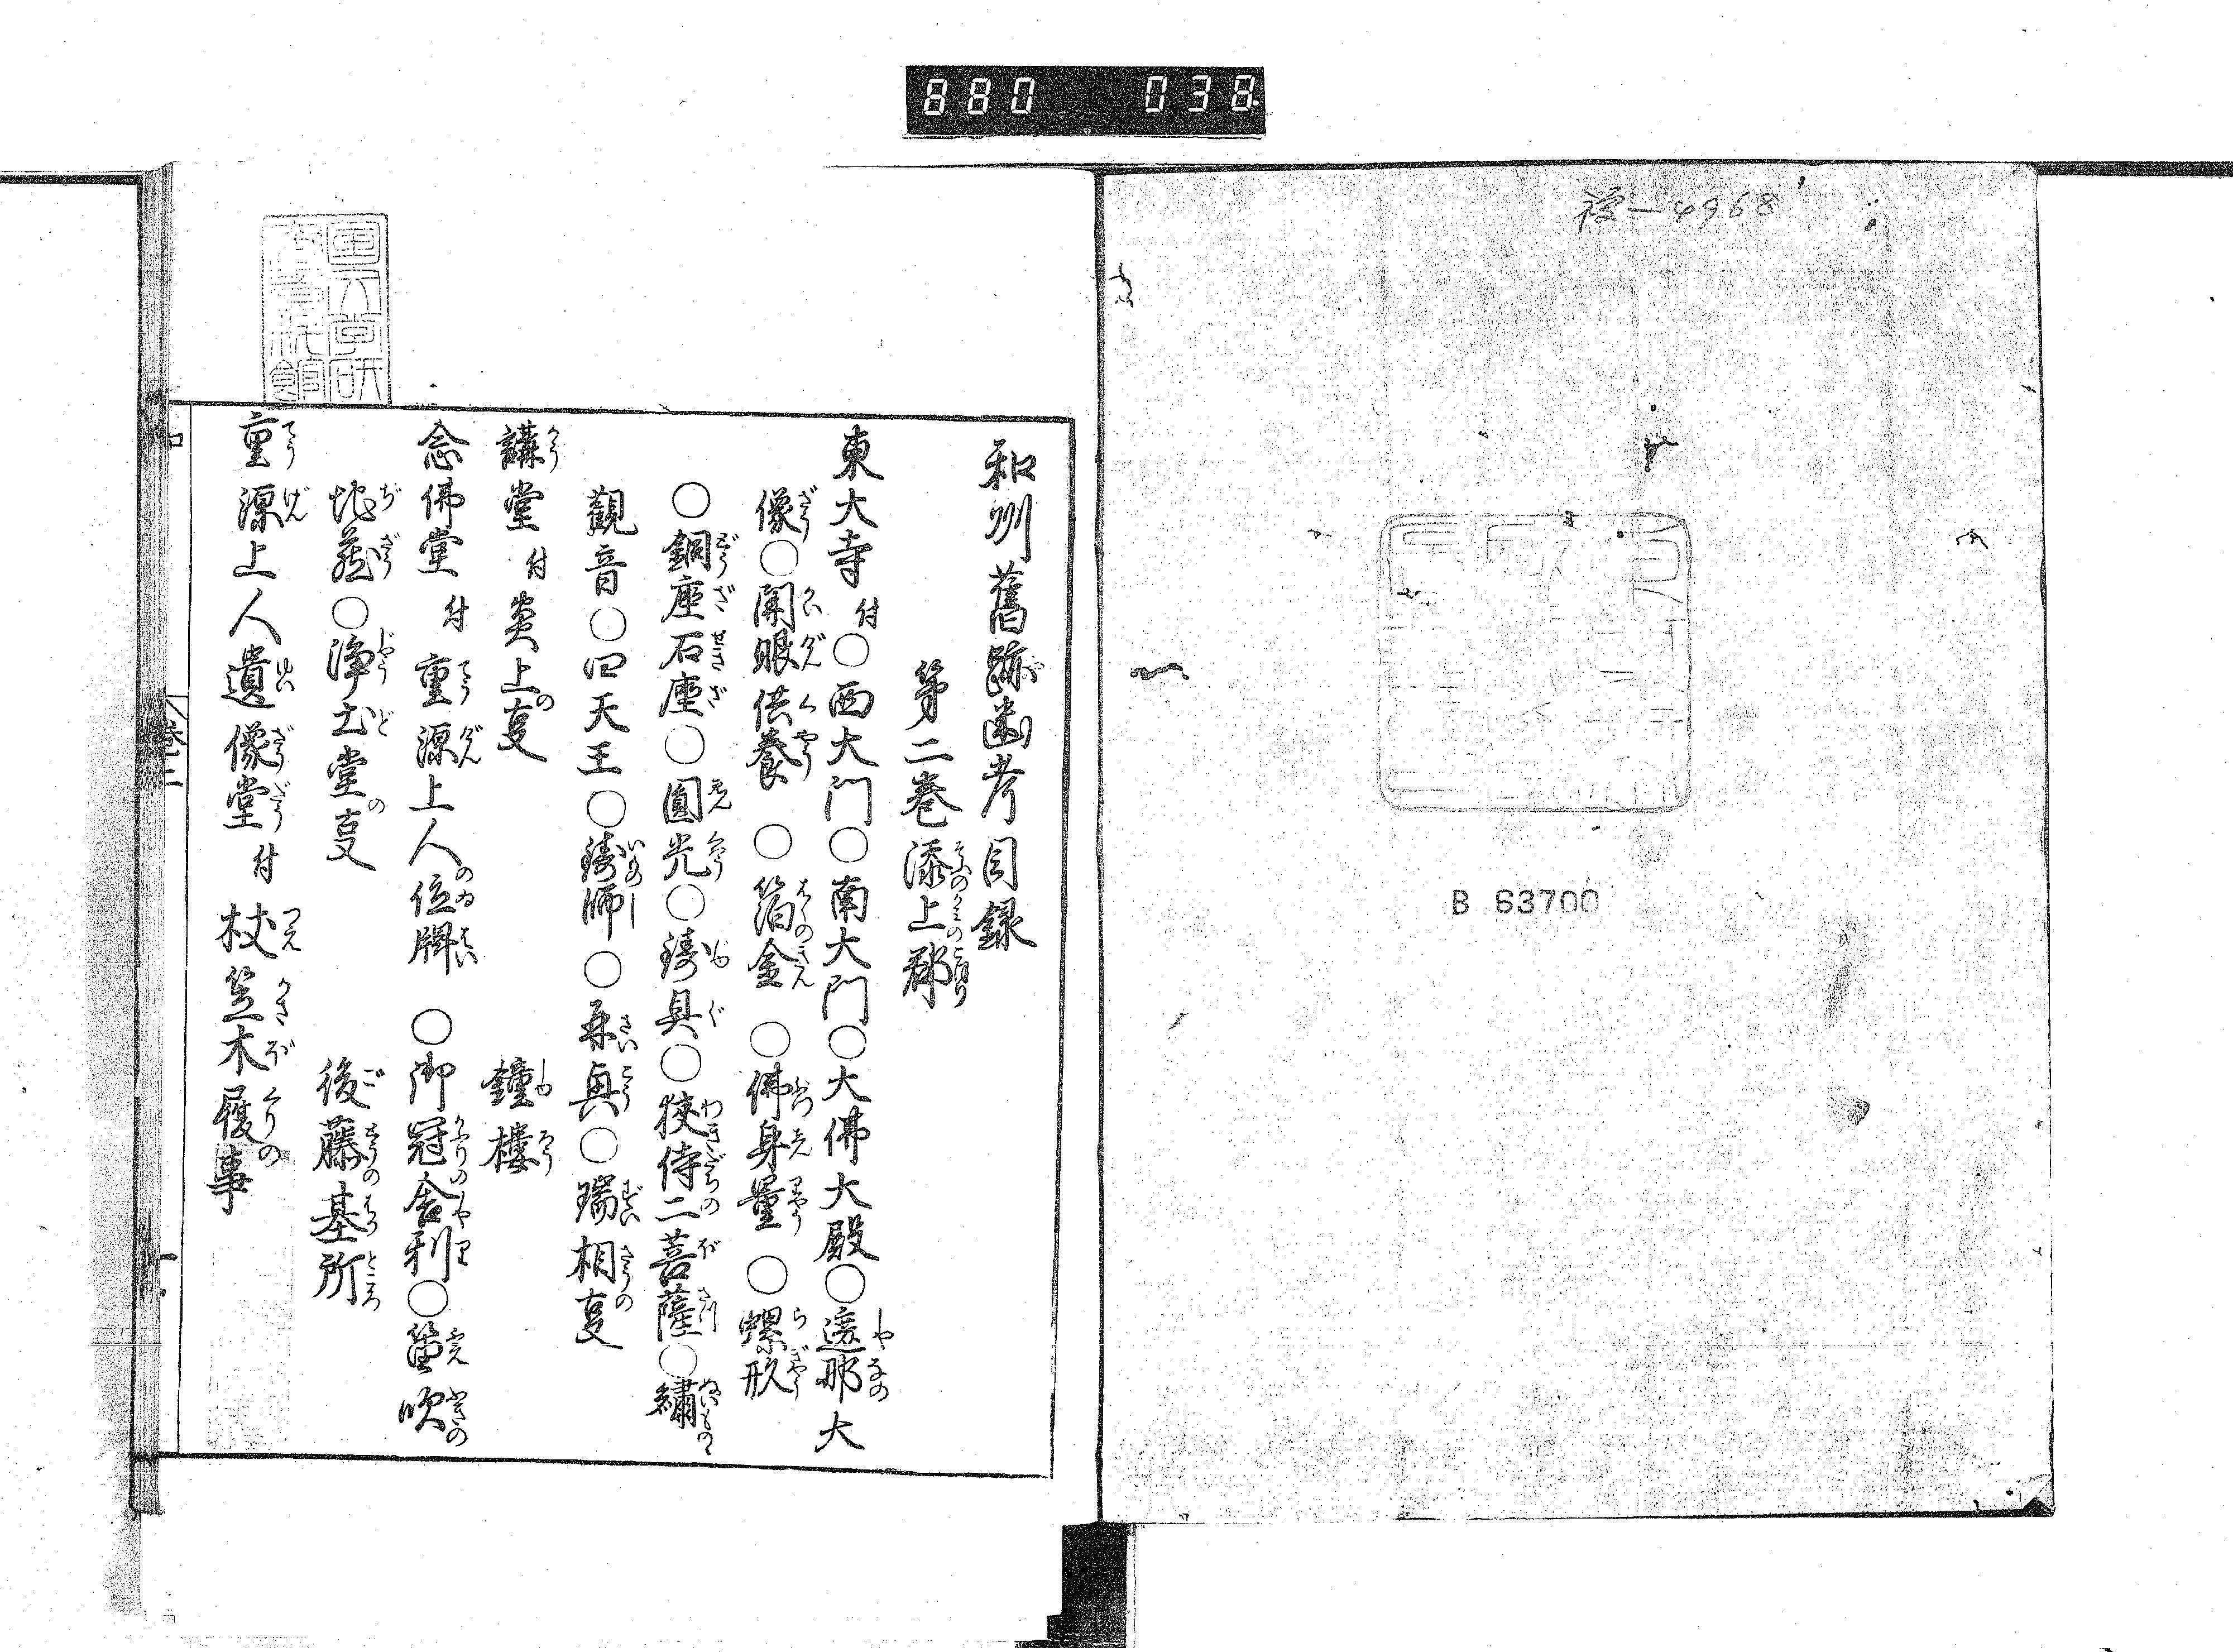 880 038
禮-4968
B 63700
和州舊跡幽考目録
第二巻添上郡
東大寺付○西大門○南大門○大佛大殿○遮那大
像○開眼供養○箔金○佛身量○螺形
○銅座石座○圓光○鋳具○狹侍二菩薩○繍
觀音○四天王○鋳師○再興○瑞相叓
講堂付炎上叓 鐘樓
念佛堂付重源上人位牌○御冠舎利○笛吹
地蔵○浄土堂叓 後藤基所
重源上人遺像堂付杖笠木履事
巻二